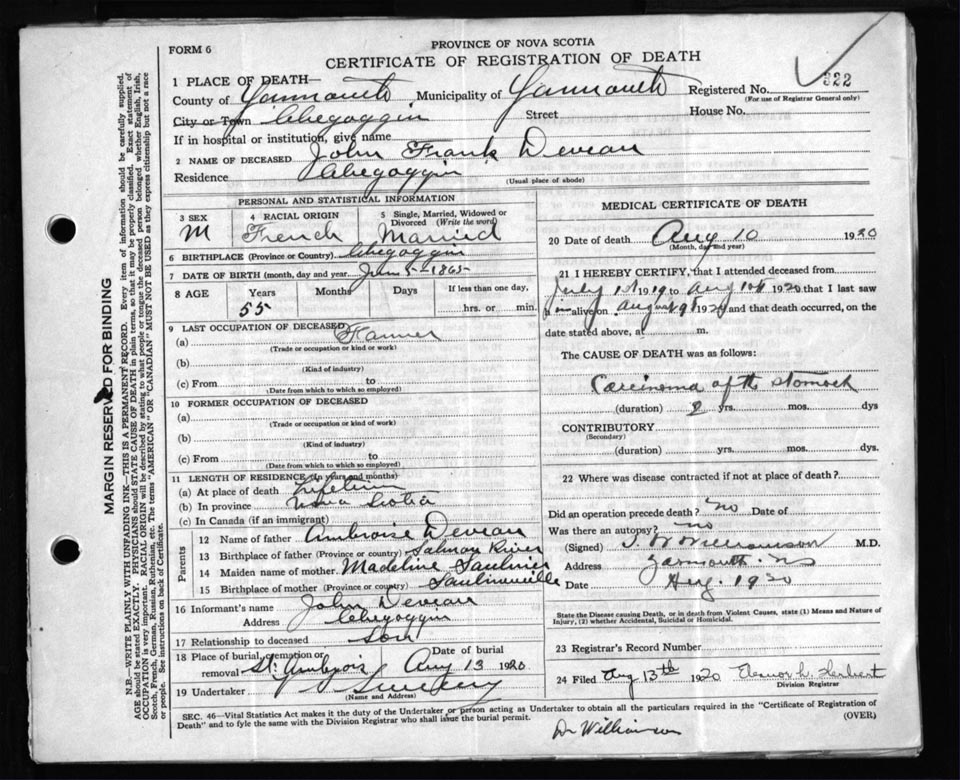 FORM 6
PROVINCE OF NOVA SCOTIA
CERTIFICATE OF REGISTRATION OF DEATH
322
1 PLACE OF DEATH—
County of Yarmouth Municipality of Yarmouth Registered No.
(For use of Registrar General only)
City or Town Chegoggin Street House No.
If in hospital or institution, give name
2 NAME OF DECEASED John Frank Deveau
Residence Chegoggin
(Usual place of abode)
PERSONAL AND STATISTICAL INFORMATION
3 SEX
M
4 RACIAL ORIGIN
French
5 Single, Married, Widowed or Divorced (Write the word)
Married
6 BIRTHPLACE (Province or Country) Chegoggin
7 DATE OF BIRTH (month, day and year) 1865
8 AGE Years Months Days If less than one day,
55 hrs. or min.
9 LAST OCCUPATION OF DECEASED
(a) Farmer
(Trade or occupation or kind or work)
(b)
(Kind of industry)
(c) From to
(Date from which to which so employed)
10 FORMER OCCUPATION OF DECEASED
(a)
(Trade or occupation or kind of work)
(b)
(Kind of industry)
(c) From to
(Date from which to which so employed)
11 LENGTH OF RESIDENCE (in years and months)
(a) At place of death Lifetime
(b) In province Nova Scotia
(c) In Canada (if an immigrant)
Parents
12 Name of father Ambroise Deveau
13 Birthplace of father (Province or country) Salmon River
14 Maiden name of mother Madeline Saulnier
15 Birthplace of mother (Province or country) Saulnierville
16 Informant's name John Deveau
Address Chegoggin
17 Relationship to deceased Son
18 Place of burial, cremation or removal St. Ambrois Date of burial Aug 13 1920
19 Undertaker Sweeny
(Name and Address)
MEDICAL CERTIFICATE OF DEATH
20 Date of death Aug 10 1920
(Month, day and year)
21 I HEREBY CERTIFY, that I attended deceased from
July 1st 1919 to Aug 10th 1920 that I last saw
alive on August 9th 1920 and that death occurred, on
date stated above, at m.
The CAUSE OF DEATH was as follows:
Carcinoma of the stomach
(duration) 2 yrs. mos. dys
CONTRIBUTORY
(Secondary)
(duration) yrs. mos. dys.
22 Where was disease contracted if not at place of death?
Did an operation precede death? no Date of
Was there an autopsy? no
(Signed) Williamson M.D.
Address Yarmouth. NS
Date Aug. 1920
State the Disease causing Death, or in death from Violent Causes, state (1) Means and Nature of Injury, (2) whether Accidental, Suicidal or Homicidal.
23 Registrar's Record Number
24 Filed Aug 13th 1920 Herbert
Division Registrar
SEC. 46—Vital Statistics Act makes it the duty of the Undertaker or person acting as Undertaker to obtain all the particulars required in the "Certificate of Registration of
Death" and to fyle the same with the Division Registrar who shall issue the burial permit. (OVER)
Dr Williamson
MARGIN RESERVED FOR BINDING
N.B.—WRITE PLAINLY WITH UNFADING INK—THIS IS A PERMANENT RECORD. Every item of information should be carefully supplied.
AGE should be stated EXACTLY. PHYSICIANS should STATE CAUSE OF DEATH in plain terms, so that it may be properly classified. Exact statement of
OCCUPATION is very important. RACIAL ORIGIN will be described by stating to what people or tongue the deceased person belonged, whether English, Irish,
Scotch, French, German, Russian, Ruthenian, etc. The terms "AMERICAN" OR "CANADIAN" MUST NOT BE USED as they express citizenship but not a race
or people. See instructions on back of Certificate.